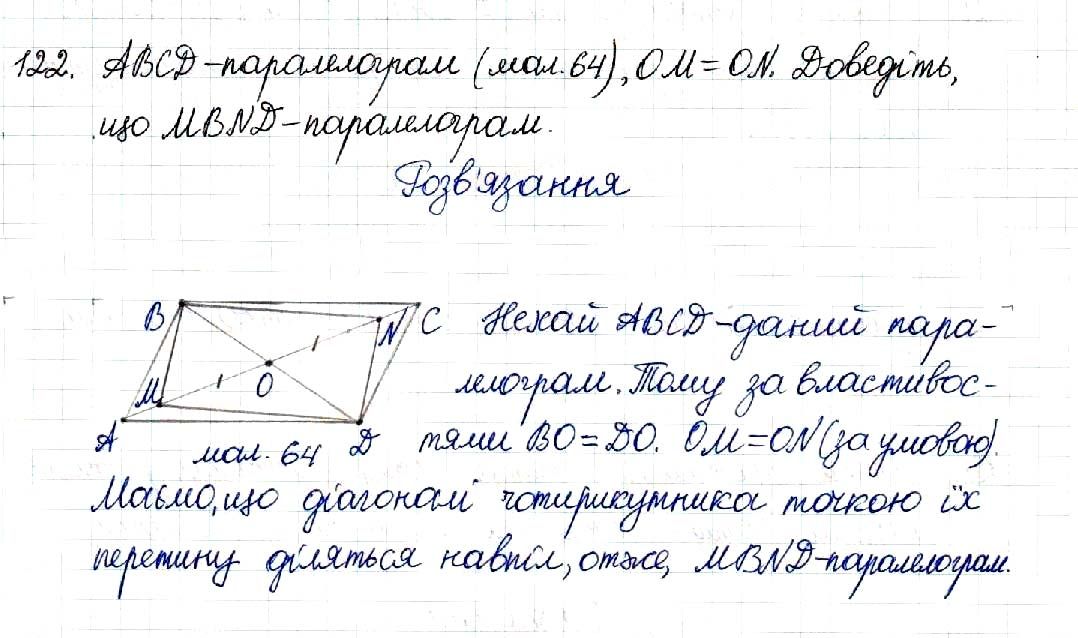 122. ABCD-паралелограм (мал. 64), OM = ON. Доведіть,
що MBND-паралелограм.
Розв'язання
B
C
N
M
O
A
D
мал. 64
Нехай ABCD-даний пара-
лелограм. Тому за властивос-
тями BO = DO. OM = ON (за умовою).
Маємо, що діагоналі чотирикутника точкою їх
перетину діляться навпіл, отже, MBND-паралелограм.